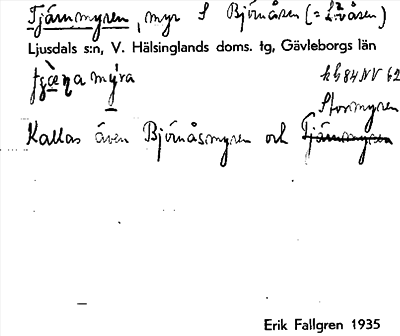 Tjärnmyren, myr S Björnåsen (= L. våsen)
Ljusdals s:n, V. Hälsinglands doms. tg, Gävleborgs län
kb 84 NV 62
Stormyren
Kallas även Björnåsmyren och Tjärnmyren
Erik Fallgren 1935